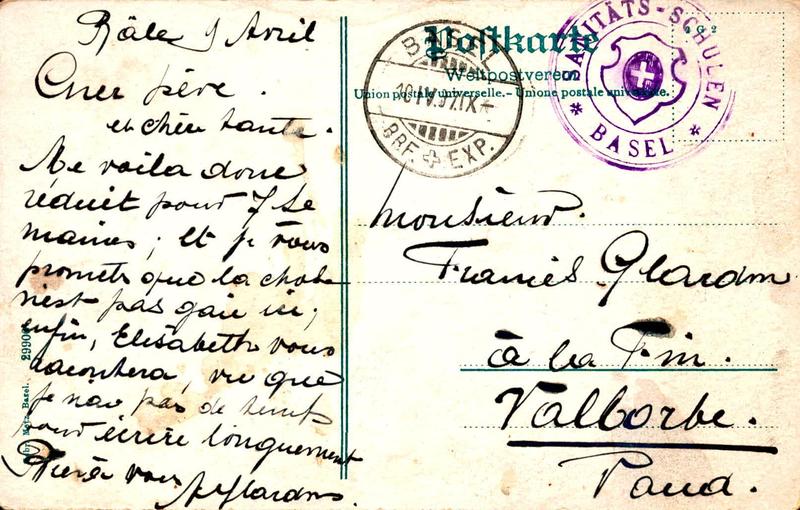 Bâle 9 Avril
Cher père
et chère tante.
Me voila donc
réduit pour 7 se
maines; Et je vous
promets que la chose
n'est pas gaie ici;
enfin, Elisabeth vous
racontera, vu que
je n'ai pas de temps
pour écrire longuement
vous
Postkarte
Weltpostverein
Union postale universelle. – Unione postale universale.
BASEL
10.IV.07.IX
BRF. EXP.
SANITÄTS-SCHULEN
* BASEL *
Monsieur.
Francis Glardon
à la Fin.
Vallorbe.
Vaud.
Metz, Basel. 29900